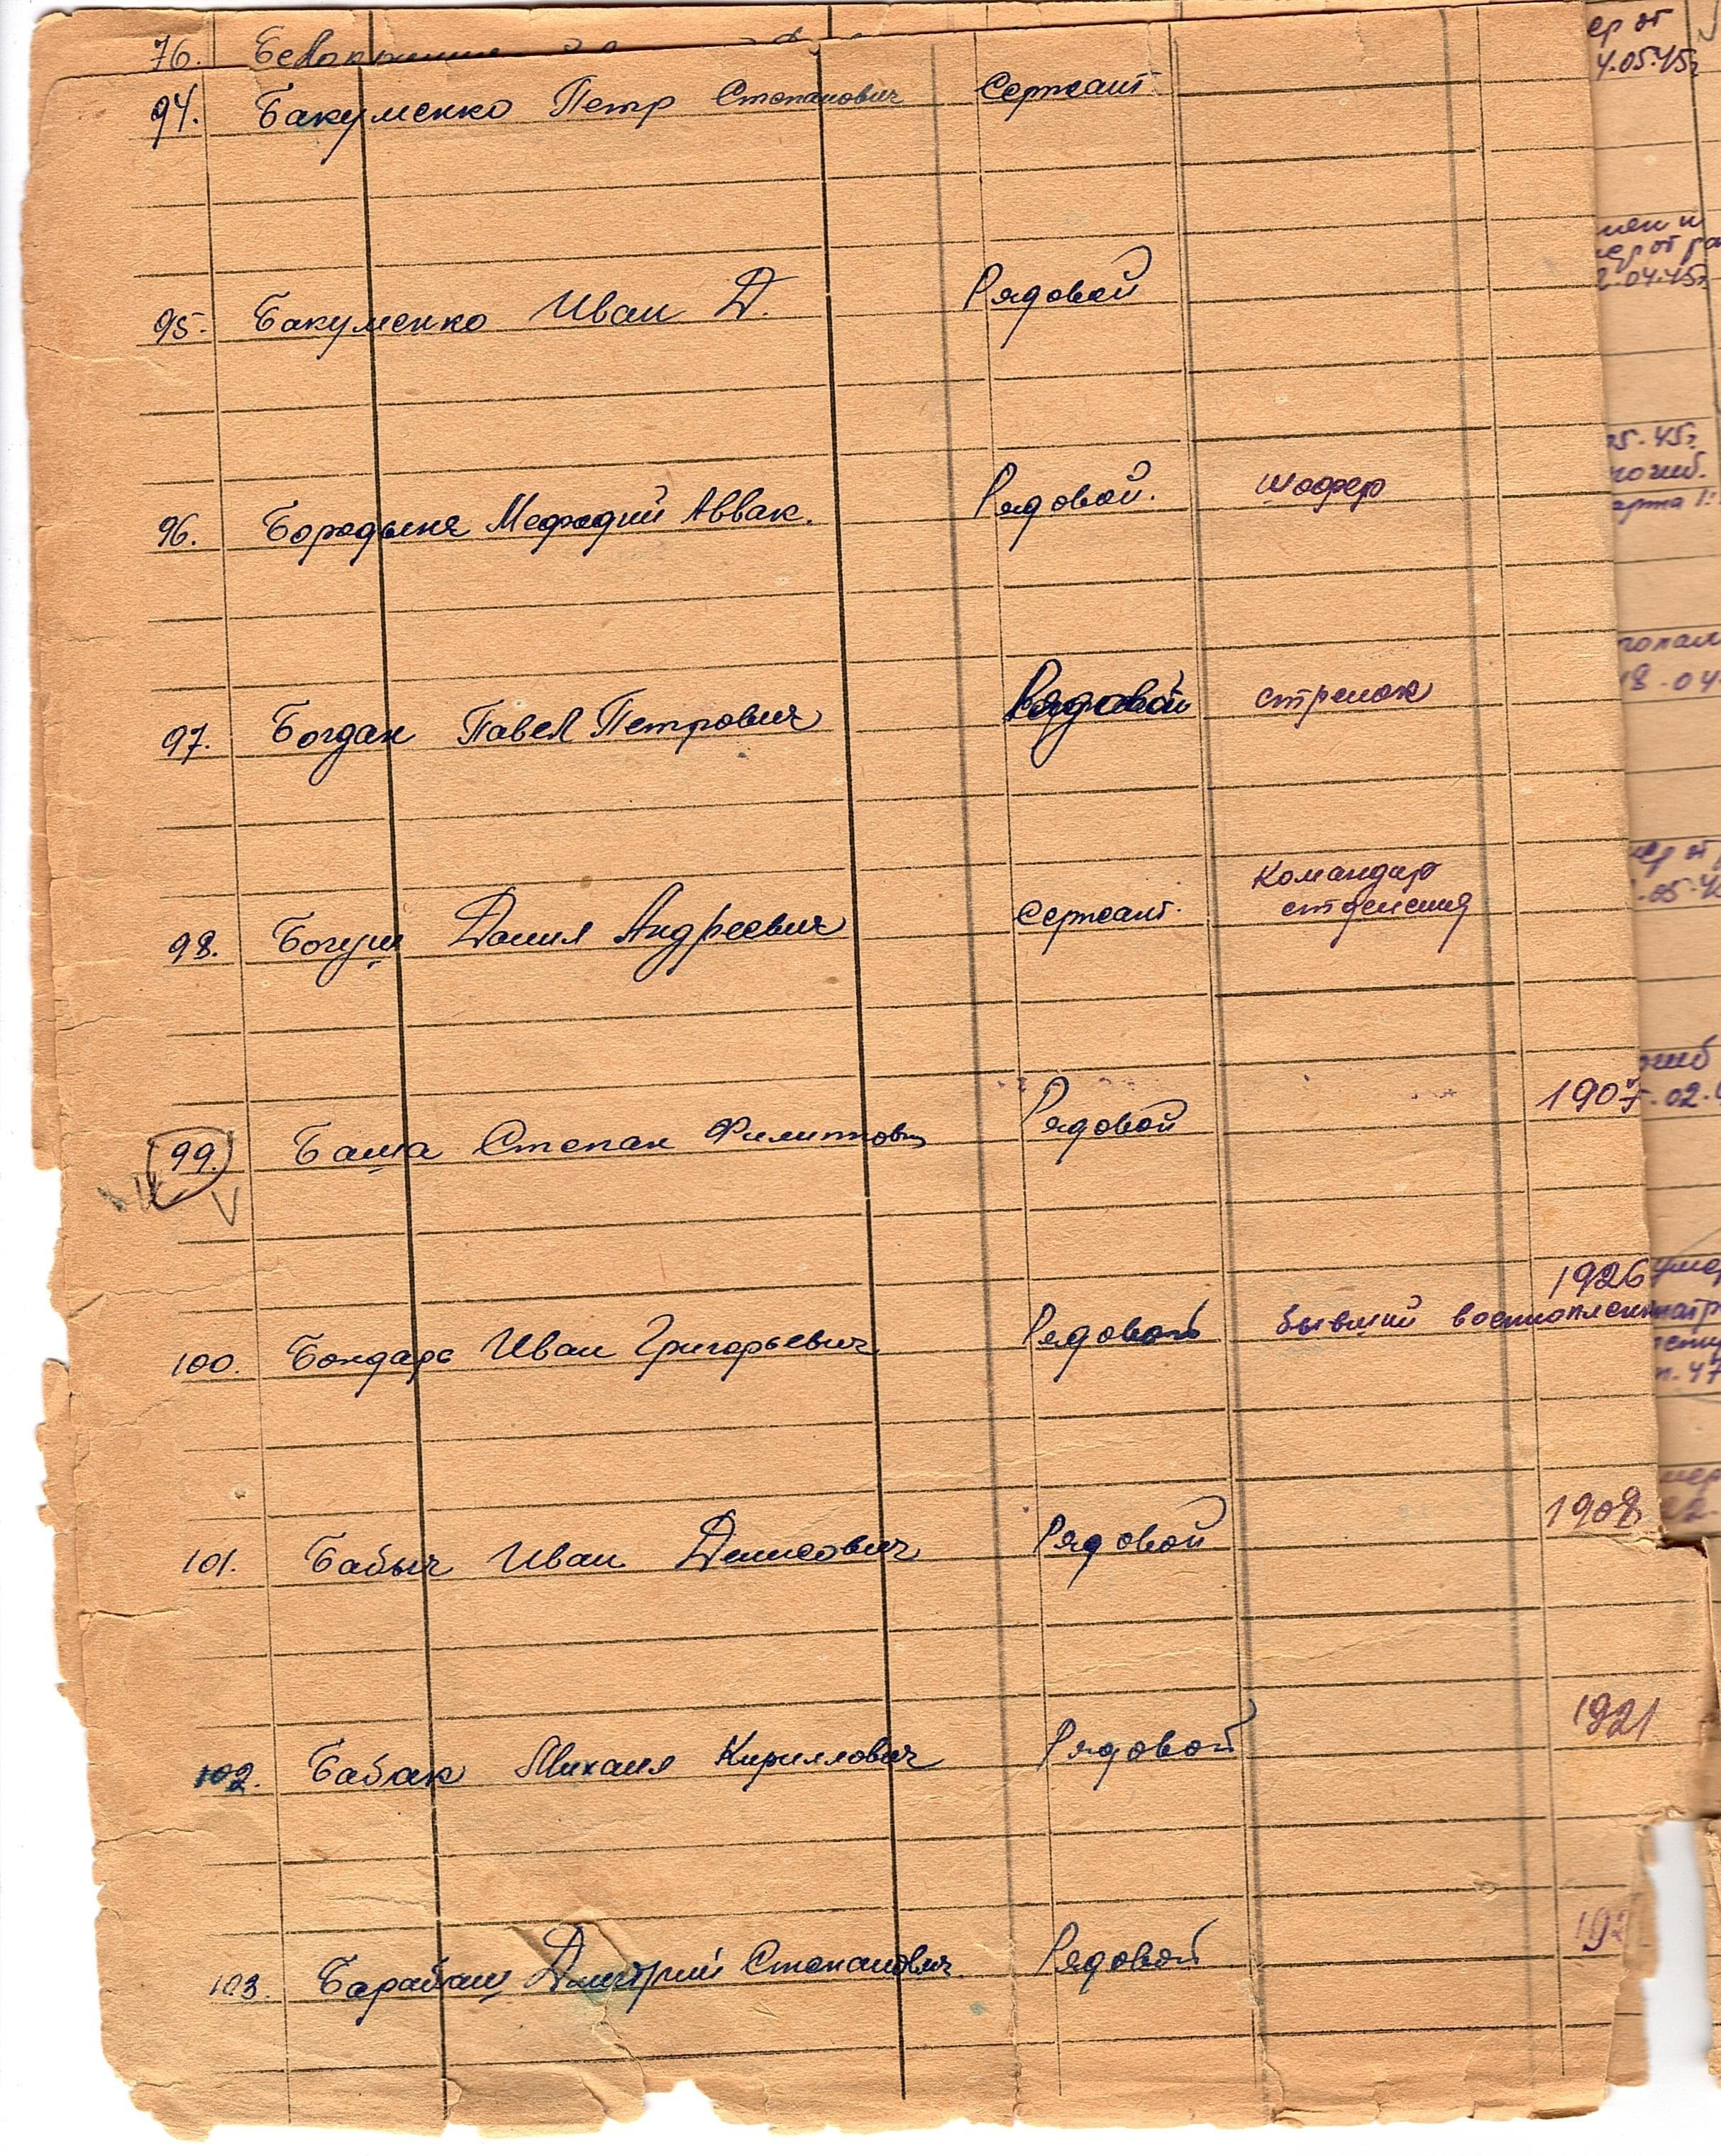 76.
94. Бакуменко Петр Степанович Сержант
95. Бакуменко Иван Д. Рядовой
96. Бородыня Мефодий Аввак. Рядовой. шофер
97. Богдан Павел Петрович Рядовой стрелок
Командир
98. Богуш Данил Андреевич Сержант. отделения
99. Баша Степан Филиппович Рядовой 1907
1926
100. Бондарь Иван Григорьевич Рядовой бывший военноплен
101. Бабыч Иван Денисович Рядовой 1908
102. Бабак Михаил Кириллович Рядовой 1921
103. Барабаш Дмитрий Степанович Рядовой 192
ер от
4.05.45г
ер от ра
2.04.45г
05.45г.
погиб.
арта 1
18.04
ер от
.05.4
огиб
.02.
умер
п.47